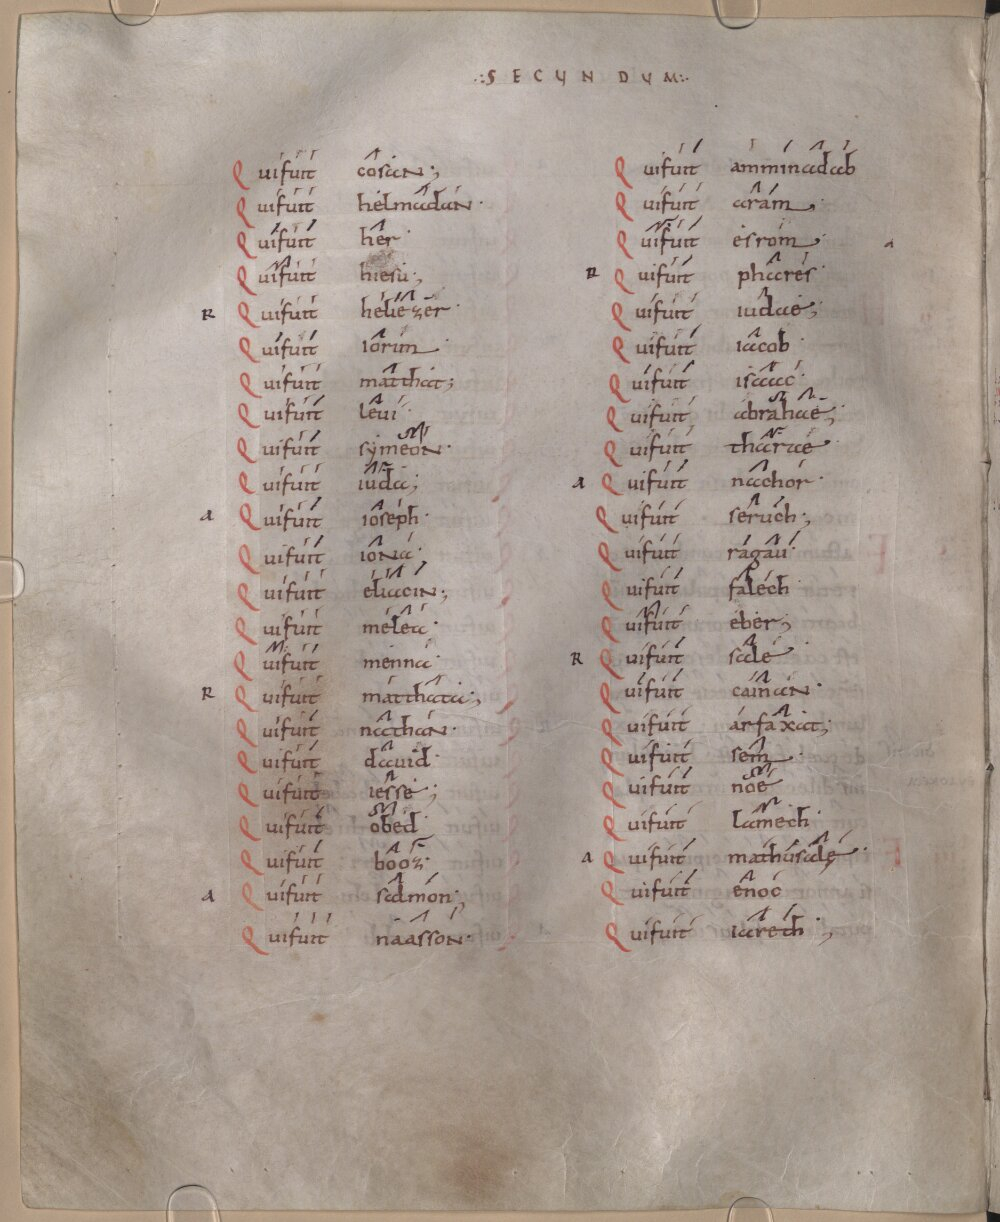 .:SECUNDUM:.
Qui fuit cosan;
Qui fuit helmadan.
Qui fuit her.
Qui fuit hiesu;
R Qui fuit heliezer.
Qui fuit iorim.
Qui fuit matthat;
Qui fuit levi.
Qui fuit symeon.
Qui fuit iuda;
A Qui fuit ioseph.
Qui fuit iona.
Qui fuit eliacin;
Qui fuit melea.
Qui fuit menna.
R Qui fuit matthata;
Qui fuit nathan.
Qui fuit dauid.
Qui fuit iesse;
Qui fuit obed.
Qui fuit booz.
A Qui fuit salmon;
Qui fuit naasson.
Qui fuit amminadab
Qui fuit aram;
Qui fuit esrom;
R Qui fuit phares.
Qui fuit iudae;
Qui fuit iacob.
Qui fuit isaac.
Qui fuit abrahae;
Qui fuit tharae.
A Qui fuit nachor.
Qui fuit seruch;
Qui fuit ragau.
Qui fuit falech
Qui fuit eber;
R Qui fuit sale.
Qui fuit cainan.
Qui fuit arfaxat;
Qui fuit sem.
Qui fuit noe.
Qui fuit lamech.
A Qui fuit mathusalę.
Qui fuit enoc
Qui fuit iareth;